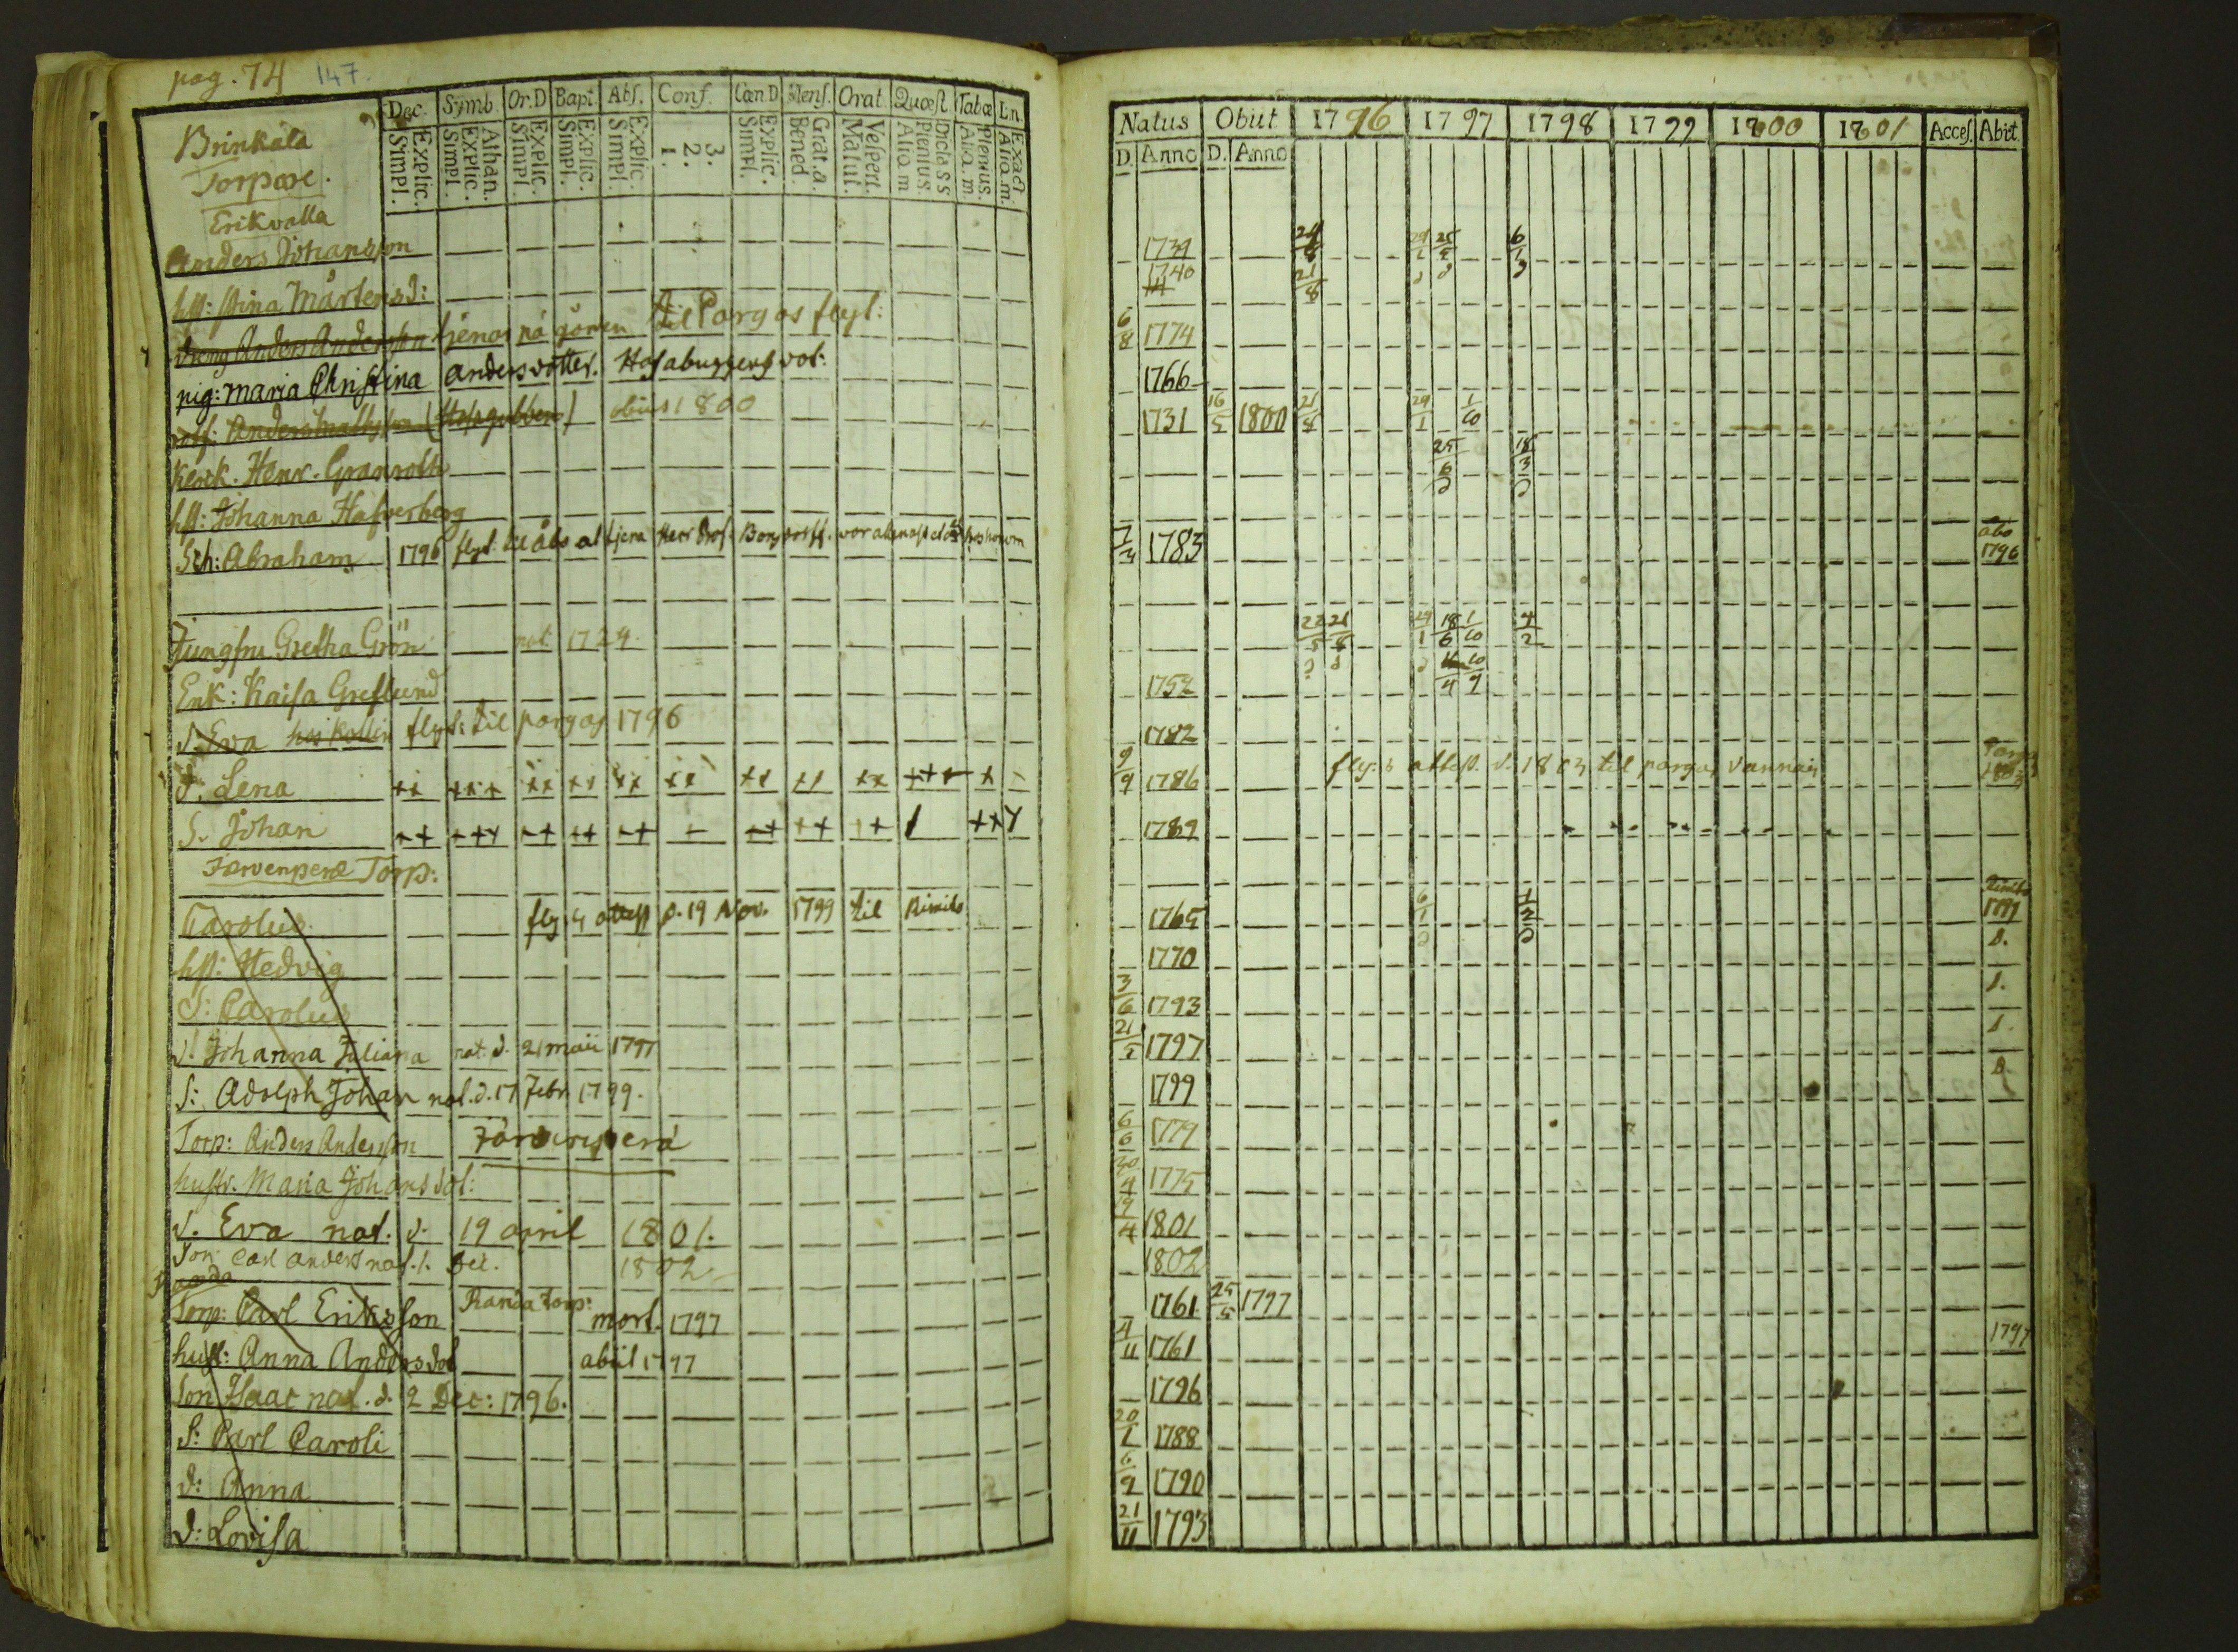 pag. 74 147.
Brinkala
Torpare.
Erikvalla
Dec. Symb. Or.D Bapt. Abs. Conf. Cœn.D Mens. Orat. Quæst. Tabœ Ln.
Simpl. Explic. Simpl. Explic. Athan. Simpl. Explic. Simpl. Explic. Simpl. Explic. 1. 2. 3. Simpl. Explic. Bened. Grat.a. Matut. Vespert. Alia.m Plenius. Dicla s s Alia.m. Plenius. Alia.m. Exact
Anders Johansson
hst: Stina Mårtensd:
Dreng Anders Andersson tjenar på til Pargas flyt:
pig: Maria Christina andersdotter.
rotf: Anders Mattsson obiit 1800
Henr. Granroth
hst: Johanna Hafverberg
Sch: Abraham 1796 flyt. til åbo at tjena Herr Prof.
Jungfru Gretha Grön nat. 1724.
Enk: Kaisa Greslund
d. Eva flyt: til pargas 1796
d. Lena ++ +++ ++ ++ ++ ++ ++ ++ ++ +++ +
S. Johan ++ +++ ++ ++ ++ + ++ ++ ++ ++
Torp:
Carolus flyt. attest d. 19 Nov. 1799 til Rimito
hst: Hedvig
S: Carolus
d. Johanna Juliana nat. d. 21 maii 1797
S: Adolph Johan nat. d. 17 Febr. 1799.
Torp: Anders Andersson Järvenperä
hustr. Maria Johansdot:
d. Eva nat. d. 19 april 1801.
Son Carl anders nat. 1. Dec. 1802
Randa
Torp: Carl Eriksson Randa Torp: mort. 1797
hust: Anna Andersdot abiit 1797
Son Isaac nat. d. 2 Dec: 1796.
S: Carl Caroli
d: Anna
d: Lovisa
Natus Obiit 1796 1797 1798 1799 1800 1801 Acces. Abiit.
D. Anno D. Anno
1739 24/1 25/5 6/1
1740 21/8
6/8 1774
1766
1731 16/5 1800 21/8 29/1 1/10
25/6 18/3
7/3 1783 åbo 1796
22/5 21/8 29/1 18/6 1/10 4/2
1752 10/9
1782
9/9 1786 attest. d. 1803 til pargas
1789
1765 6/1 1799
1770 D.
3/6 1793 D.
21/5 1797 D.
1799 D.
6/6 1779
30/4 1775
19/4 1801
1802
1761 25/5 1797
4/11 1761 1797
1796
20/1 1788
6/9 1790
21/11 1793